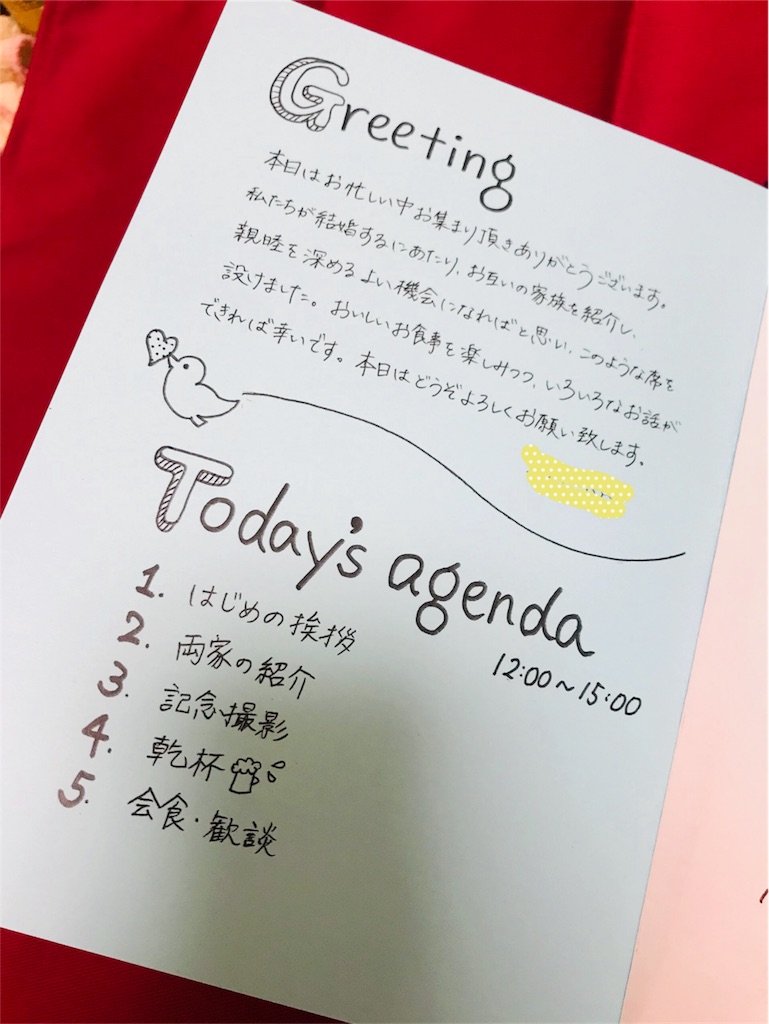 Greeting
本日はお忙しい中お集まり頂きありがとうございます。
私たちが結婚するにあたり、お互いの家族を紹介し、
親睦を深めるよい機会になればと思い、このような席を
設けました。おいしいお食事を楽しみつつ、いろいろなお話が
できれば幸いです。本日はどうぞよろしくお願い致します。
Today's agenda
12:00〜15:00
1. はじめの挨拶
2. 両家の紹介
3. 記念撮影
4. 乾杯
5. 会食・歓談